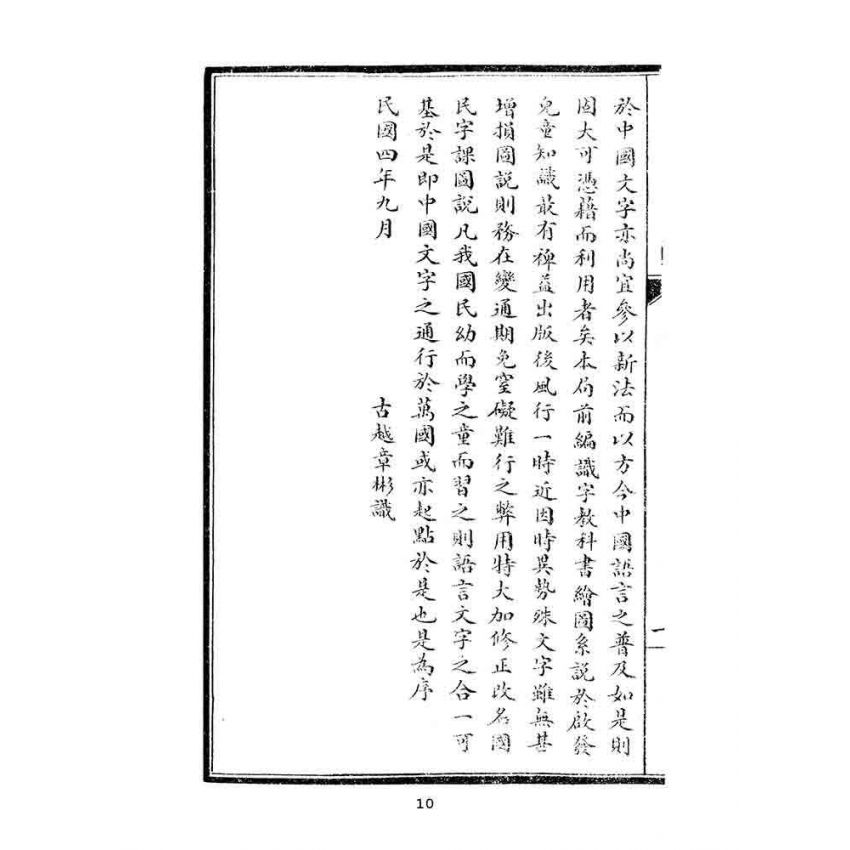 於中國文字亦尚宜參以新法而以方今中國語言之普及如是則
固大可憑藉而利用者矣本局前編識字教科書繪圖系說於啟發
兒童知識最有裨益出版後風行一時近因時異勢殊文字雖無甚
增損圖說則務在變通期免窒礙難行之弊用特大加修正改名國
民字課圖說凡我國民幼而學之童而習之則語言文字之合一可
基於是即中國文字之通行於萬國或亦起點於是也是為序
民國四年九月
古越章彬識
二
10